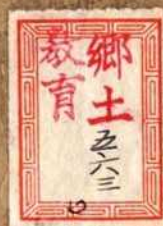 郷土
教育
五六三